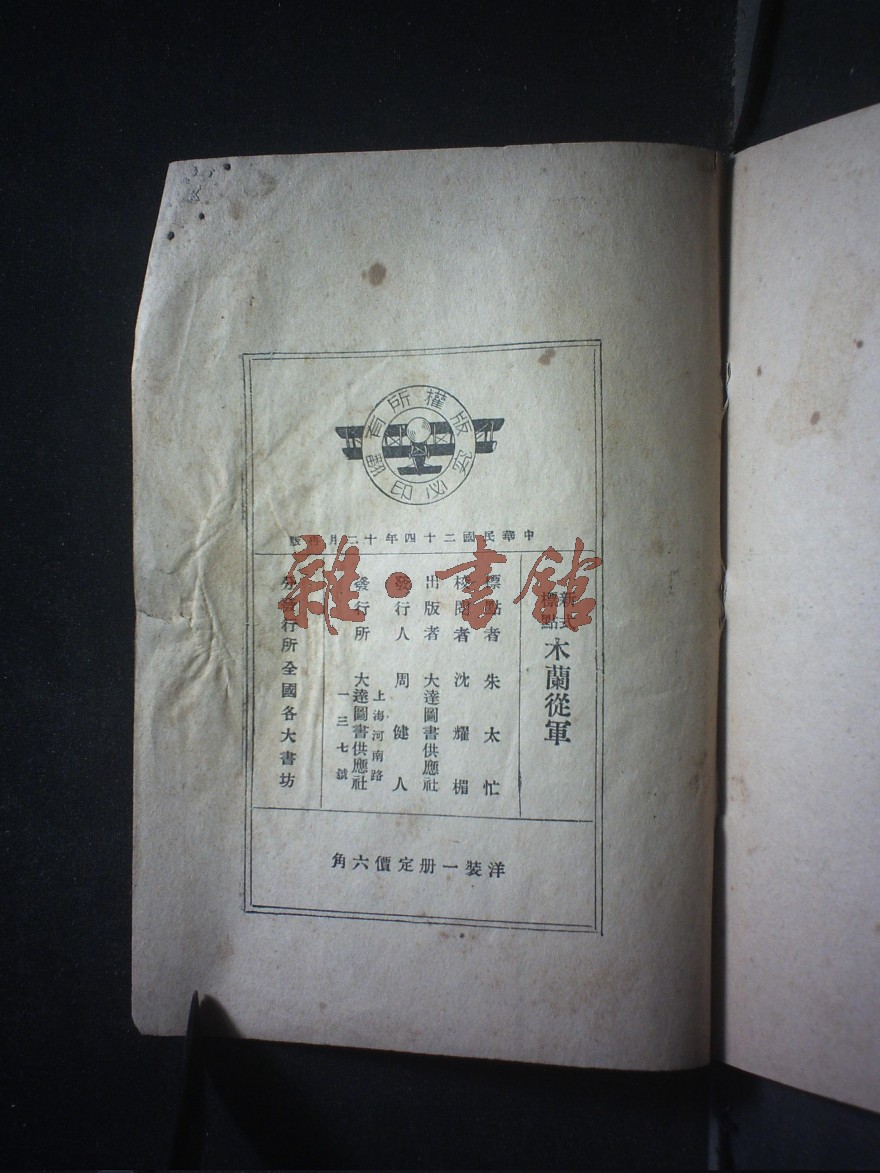 版權所有
翻印必究
中華民國二十四年十二月再版
新式標點
木蘭從軍
標點者 朱太忙
校閱者 沈耀楣
出版者 大達圖書供應社
發行人 周健人
上海河南路
發行所 大達圖書供應社
一三七號
分發行所全國各大書坊
洋裝一册定價六角
雜·書館